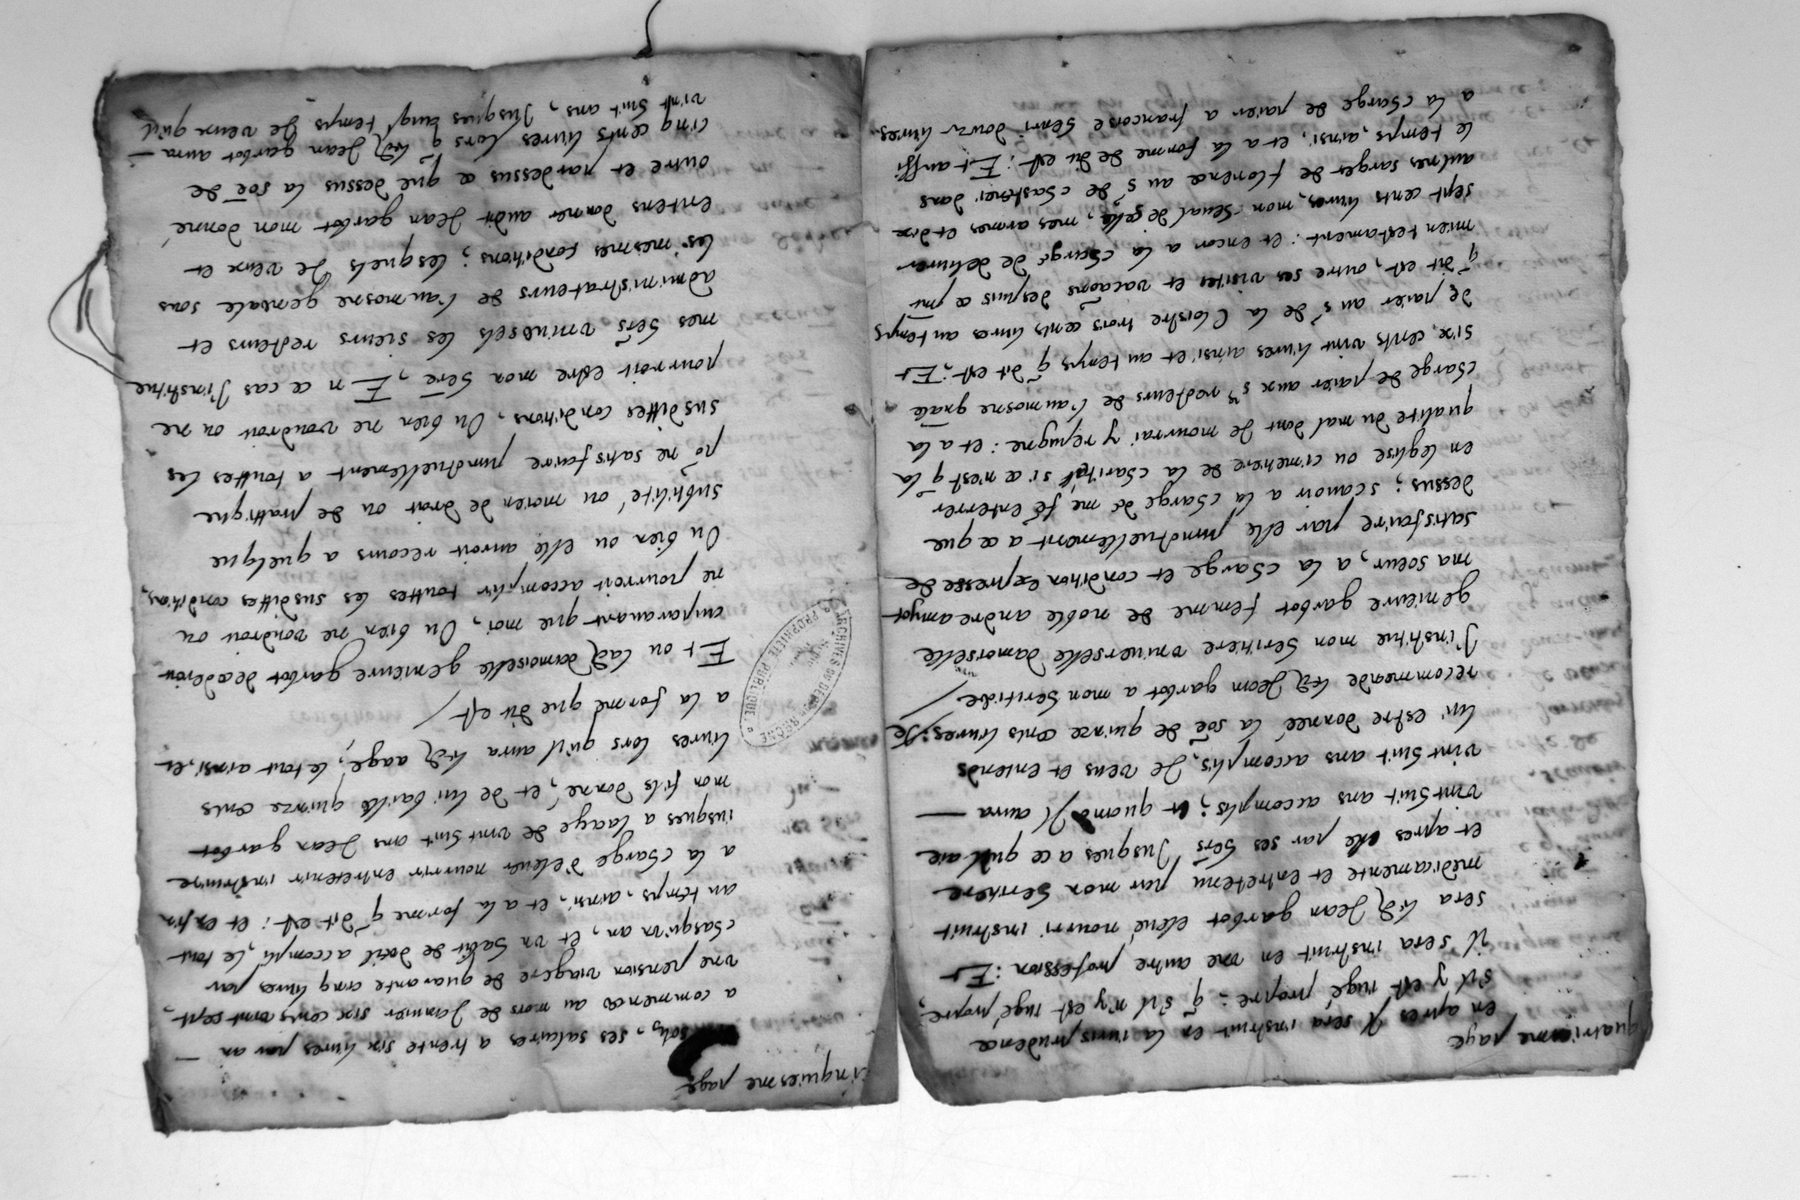 quatriesme page
en apres Il sera instruit en la jurisprudence
s'il y est jugé propre: q̃ s'il n'y est jugé propre,
il sera instruit en une autre profession: Et
sera led. Jean garbot elevé nourri instruit
medicamenté et entretenu par mon heritiere
et apres elle par ses hers̃ Jusques a ce qu'il aie
vint huit ans accomplis; et quand Il aura —
vint huit ans accomplis, Je veus et entends
lui estre donnée la sõe de quinze cents livres: Je
recommende led. Jean garbot a mon heritiere /
J'institue mon heritiere universelle damoiselle
genievre garbot femme de noble andre amyot
ma soeur, a la charge et condition expresse de
satisfaire par elle punctuellement a ce que
dessus; scavoir a la charge de me fẽ enterrer
en leglise ou cimetiere de la charité si ce n'est q̃ la
qualité du mal dont Je mourrai y repugne: et a la
charge de paier aux srs recteurs de l'aumosne gnãle
six cents vint livres ainsi et au temps q̃ dit est: Et
de paier au sr de la Cloistre trois cents livres au temps
q̃ dit est, outre ses visites et vacaõns despuis ce pñt
mien testament: et encor a la charge de delivrer
sept cents livres, mon cheval de selle, mes armes et dix
aulnes sarges de florence au sr de chastenei dans
le temps, ainsi, et a la forme de dit est: Et aussi
a la charge de paier a francoise henri douze livres
cinquiesme page
sols, ses salaires a trente six livres par an —
a commencé au mois de Janvier six cents vint sept,
une pension viagere de quarante cinq livres par
chasqu'un an, et un habit de dueil accompli, le tout
au temps, ainsi, et a la forme q̃ dit est: et enfin
a la charge d'elever nourrir entretenir instruire
jusques a laage de vint huit ans Jean garbot
mon fils donné, et de lui bailler quinze cents
livres lors qu'il aura led. aage, le tout ainsi, et
a la forme que dit est /
Et ou lad. damoiselle genievre garbot decederoit
auparavant que moi, Ou bien ne voudroit ou
ne pourroit accomplir touttes les susdittes conditions,
Ou bien ou elle auroit recours a quelque
subtilité ou moien de droit ou de prattique
põ ne satisfaire punctuellement a touttes les
susdittes conditions, Ou bien ne voudroit ou ne
pourroit estre mon here, En ce cas J'institue
mes hers̃ universels les sieurs recteurs et
administrateurs de l'aumosne generale sous
les mesmes conditions; lesquels Je veux et
entens donner audit Jean garbot mon donné
outre et pardessus ce que dessus la sõe de
cinq cents livres lors q̃ led. Jean garbot aura —
vint huit ans, Jusques auql temps Je veux qu'il
ARCHIVES DU DEP. DU RHÔNE
PROPRIÉTÉ PUBLIQUE